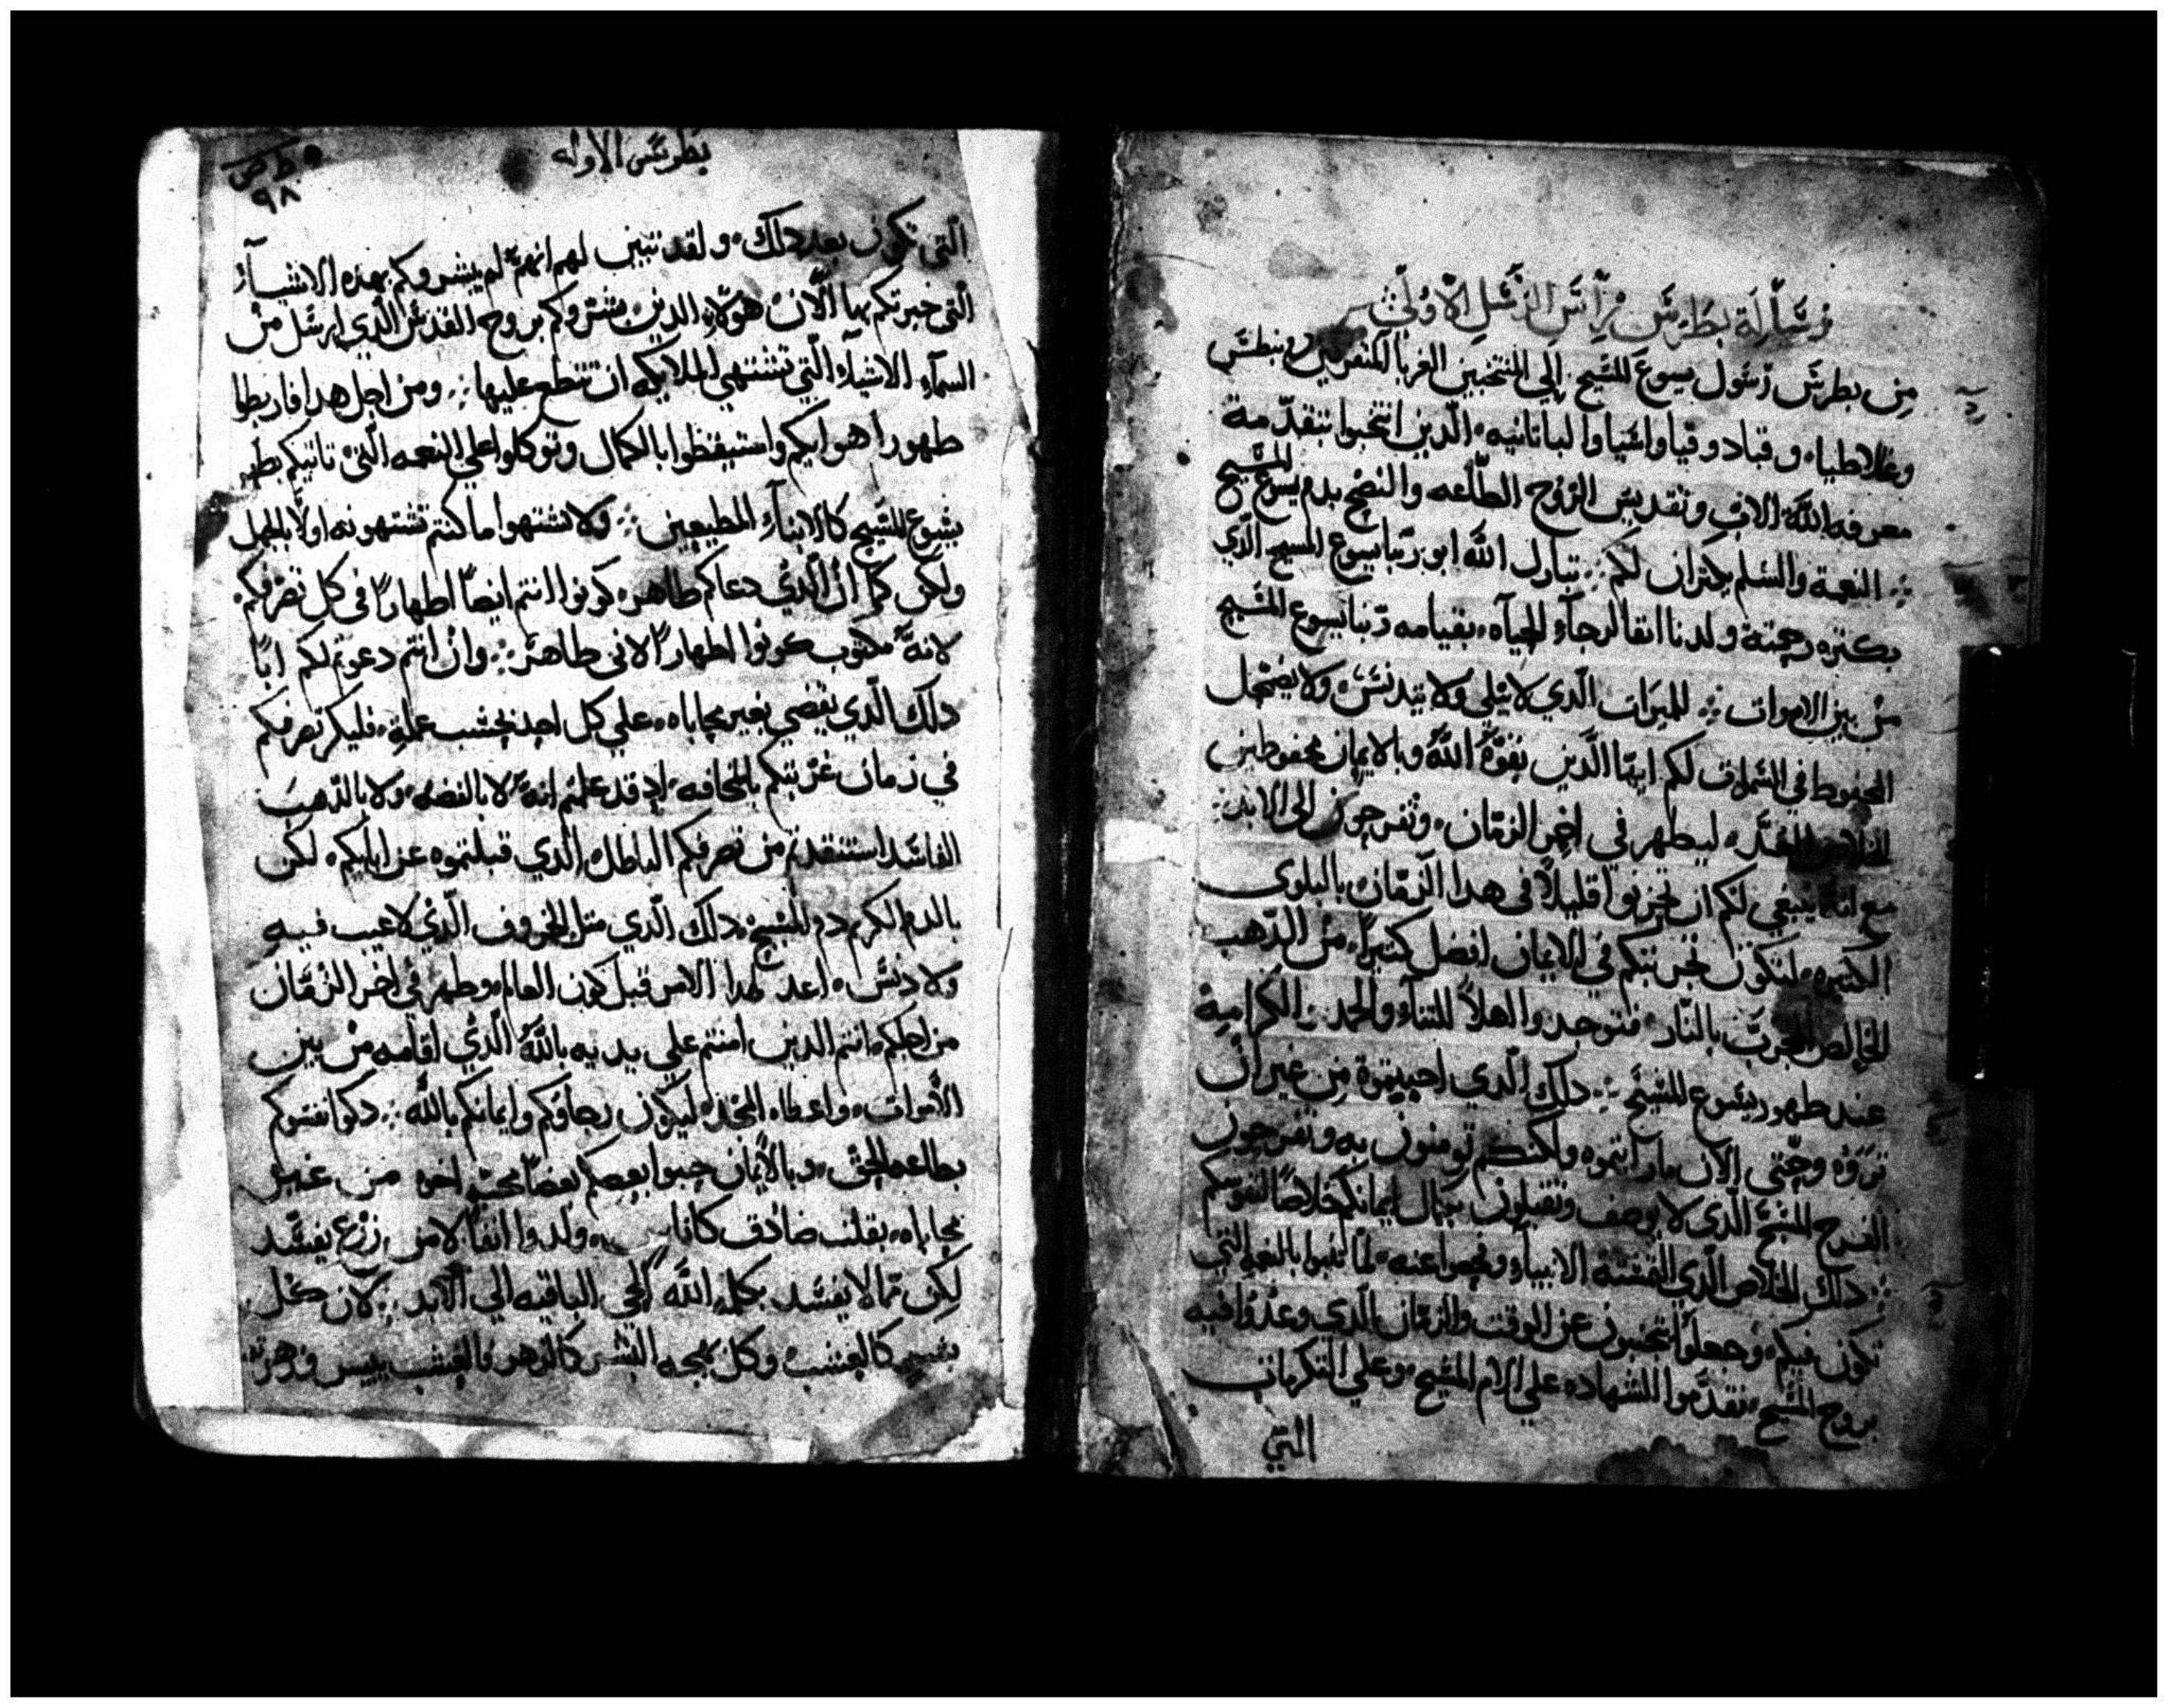 رسالة بطرس راس الرسل الاولى
من بطرس رسول يسوع المسيح الي المنتخبين الغربا المتفرقين في بنطس
وغلاطيا وقبادوقيا واسيا والباتانيه الذين انتخبوا بتقدمة
معرفه الله الاب وتقديس الروح الطاعه والنضح بدم يسوع المسيح
النعمة والسلم يكثران لكم تبارك الله ابو ربنا يسوع المسيح الذي
بكثره رحمته ولدنا انفا لرجاء الحياه بقيامه ربنا يسوع المسيح
من بين الاموات للميرات الدي لا يبلي ولا يتدنس ولا يضمحل
المحفوظ في السموات لكم ايها الدين بقوة الله وبالايمان محفوظين
المعد ليظهر في اخر الزمان وتفرحون الى الابد
مع انه ينبغي لكم ان تحزنوا قليلا في هدا الزمان بالبلوى
الكتيره لتكون تجربتكم في الايمان افضل كتيرا من الدهب
الخالص المجرب بالنار فتوجدوا اهلا للتناء والحمد والكرامة
عند ظهور يسوع المسيح دلك الدي احببتموة من غير ان
تروه وحتي الان ما رايتموه ولكنكم تومنون به وتفرحون
الفرح المسبح الدي لا يوصف وتقبلون بكمال ايمانكم خلاصا لنفوسكم
دلك الخلاص الدي التمسته الانبياء وفحصوا عنه لما تنبوا بالنعمه التي
تكون فيكم وجعلوا يبحثون عن الوقت والزمان الدي وعدوا فيه
بروح المسيح تقدموا للشهاده علي الام المسيح وعلي التكرمات
التي
بطرس الاوله
٩٨
التي تكون بعد دلك ولقد تبين لهم انهم لم يبشروكم بهده الاشياء
التي خبرتكم بها الان هولاء الدين بشروكم بروح القدس الدي ارسل من
السماء الاشياء التي تشتهي الملايكه ان تتطلع عليها ومن اجل هدا فاربطوا
ظهور اهوايكم واستيقظوا بالكمال وتوكلوا علي النعمه التي تاتيكم بظهور
يسوع المسيح كالابناء المطيعين ولا تشتهوا ما كنتم تشتهونه اولا بالجهل
ولكن كما ان الدي دعاكم طاهر كونوا انتم ايضا اطهارا في كل تصرفكم
لانه مكتوب كونوا اطهارا لاني طاهر وان انتم دعوتم لكم ابا
دلك الدي يقضي بغير محاباه علي كل احد بحسب عمله فليكن تصرفكم
في زمان غربتكم بالمخافه اد قد علمتم انه لا بالفضه ولا بالدهب
الفاسد استنقدتم من تصرفكم الباطل الدي قبلتموه عن ابايكم لكن
بالدم الكريم دم المسيح دلك الدي متل الخروف الدي لا عيب فيه
ولا دنس اعد لهدا الامر قبل كون العالم وظهر في اخر الزمان
من اجلكم انتم الدين امنتم علي يديه بالله الدي اقامه من بين
الاموات واعطاه المجد ليكون رجاوكم وايمانكم بالله دكوا نفسوكم
بطاعه الحق وبالايمان حبوا بعضكم بعضا بمحبة من غير
محاباه بقلب صادق كاناس ولدوا انفا لا من زرع يفسد
لكن مما لا يفسد بكلمه الله الحي الباقيه الي الابد لان كل
بشر كالعشب وكل بهجه البشر كالزهر فالعشب ييبس وزهرته